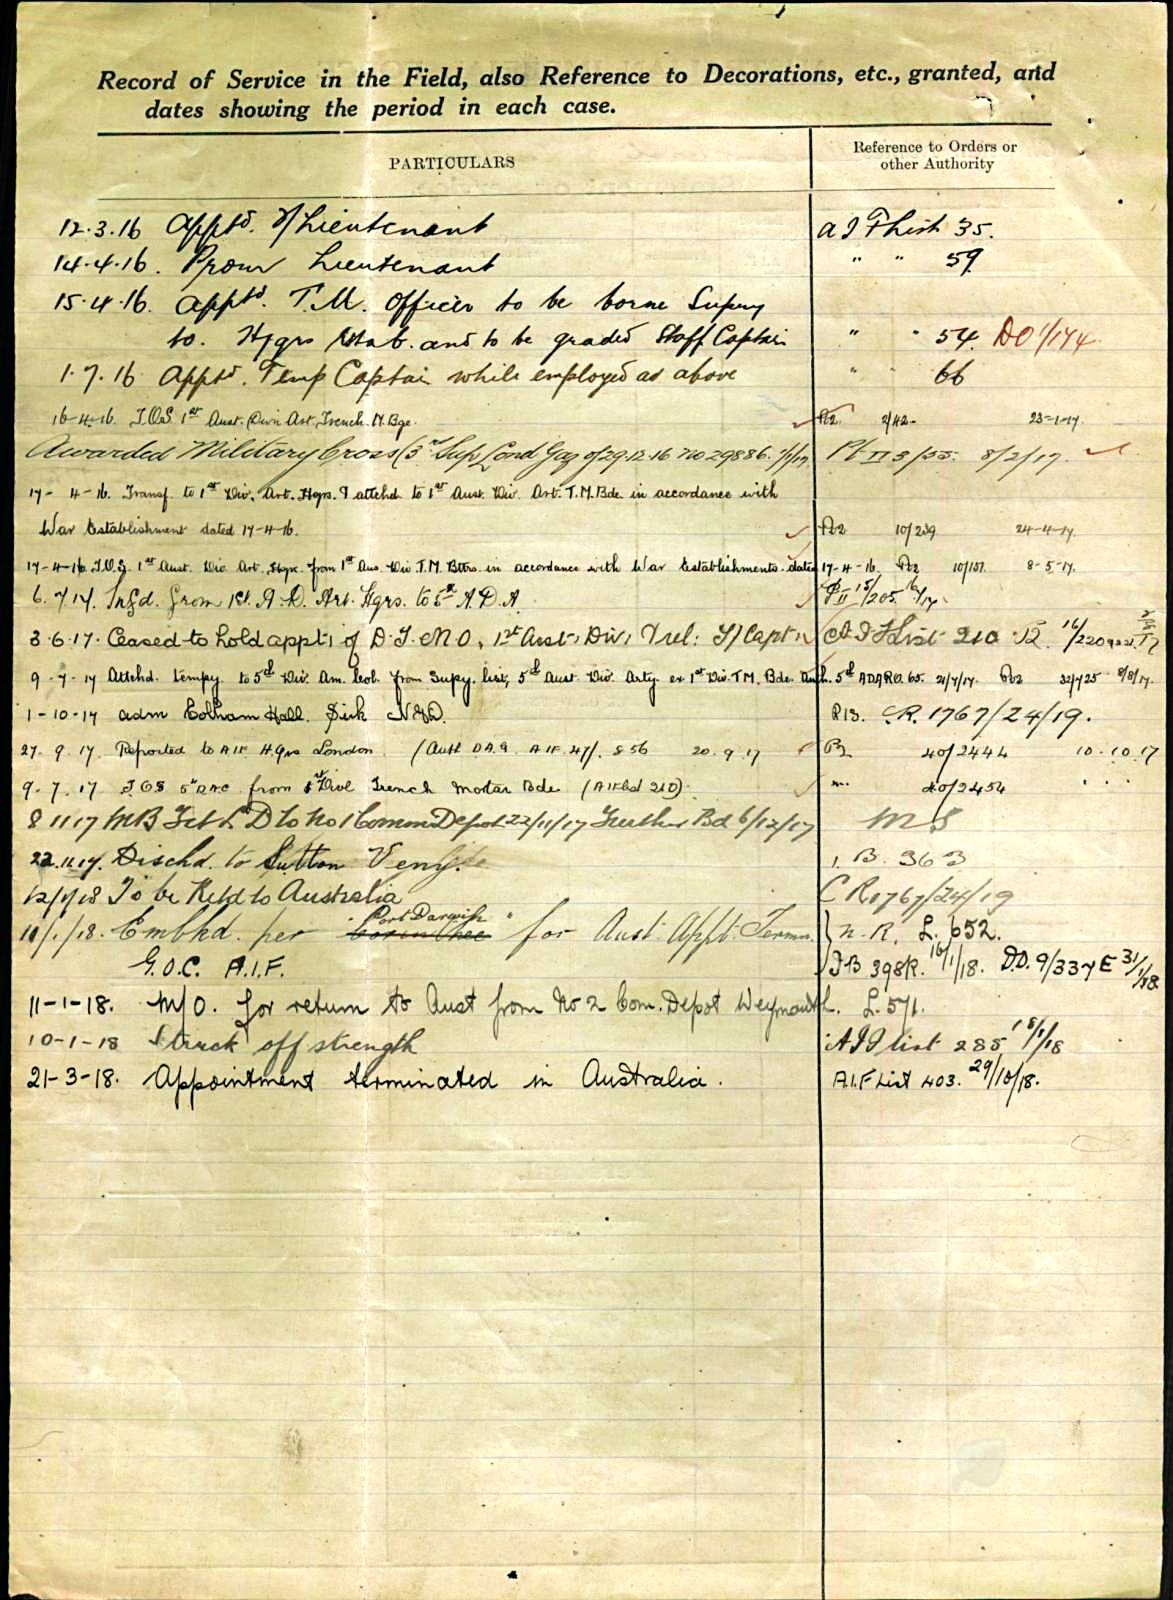 Record of Service in the Field, also Reference to Decorations, etc., granted, and
dates showing the period in each case.
PARTICULARS
Reference to Orders or
other Authority
12.3.16 Apptd. 2/Lieutenant A I F List 35.
14.4.16. Prom Lieutenant " " 59
15.4.16. Apptd. T.M. Officer to be borne Supery
to. Hqrs Estab. and to be graded Staff Captain " " 54. DO 1/174
1.7.16 Apptd. Temp Captain while employed as above " " 66
16-4-16. T.O.S 1st Aust. Divn Art. Trench. M. Bge. 2/42- 23-1-17.
Awarded Military Cross (5th Sup Lond Gaz of 29.12.16 No 29886. 1/1/17 Pt II 3/55. 8/2/17.
17-4-16. Transf. to 1st Div. Art. Hqrs. & attchd to 1st Aust. Div. Art. T.M. Bde. in accordance with
War Establishment dated 17-4-16. 10/239 24-4-17.
17-4-16. T.O.S. 1st Aust. Div. Art. Hqrs. from 1st Aus. Div. T.M. Bttrs. in accordance with War Establishments dated 17-4-16. 10/151 8-5-17.
6.7.17. Trsfd. from 1st. A.D. Art. Hqrs. to 5th A.D.A. P II 15/205.
3.6.17. Ceased to hold appt. of D.T.M.O, 1st Aust. Div. & rel. T/Capt A I F List 210
9-7-17 Attchd. tempy to 5th Div. Am. Col. from Supy. list, 5th Aust. Div. Arty. ex 1st Div. T.M. Bde. Auth. 5th ADARO. 65. 21/7/17. 32/425 8/8/17.
1-10-17 adm Cobham Hall. Sick N.Y.D. B13. CR. 1767/24/19.
27.9.17. Reported to AIF Hqrs London. (Auth DAG. AIF. 47/. 856 20.9.17 40/2444 10.10.17
9.7.17 TOS 5th DAC from 1st Divl Trench Mortar Bde (AIF List 210) 40/2454
8 11 17 MB Fit for D to No 1 Comm Depot 22/11/17 Further Bd 6/12/17 MS
22.11.17. Dischd. to Sutton Veny. B. 363
12/1/18 To be Retd to Australia C R 1767/24/19
10/1/18. Embkd. per "Port Darwin" for Aust. Appt. Termn. N.R. L. 652.
G.O.C. A.I.F. FB 398R. 16/1/18. D.D. 9/337 E 31/1/18.
11-1-18. M/O. for return to Aust from No 2 Com. Depot Weymouth. L. 571.
10-1-18 Struck off strength A I F list 285 15/1/18
21-3-18. Appointment terminated in Australia. A.I.F List 403. 29/10/18.